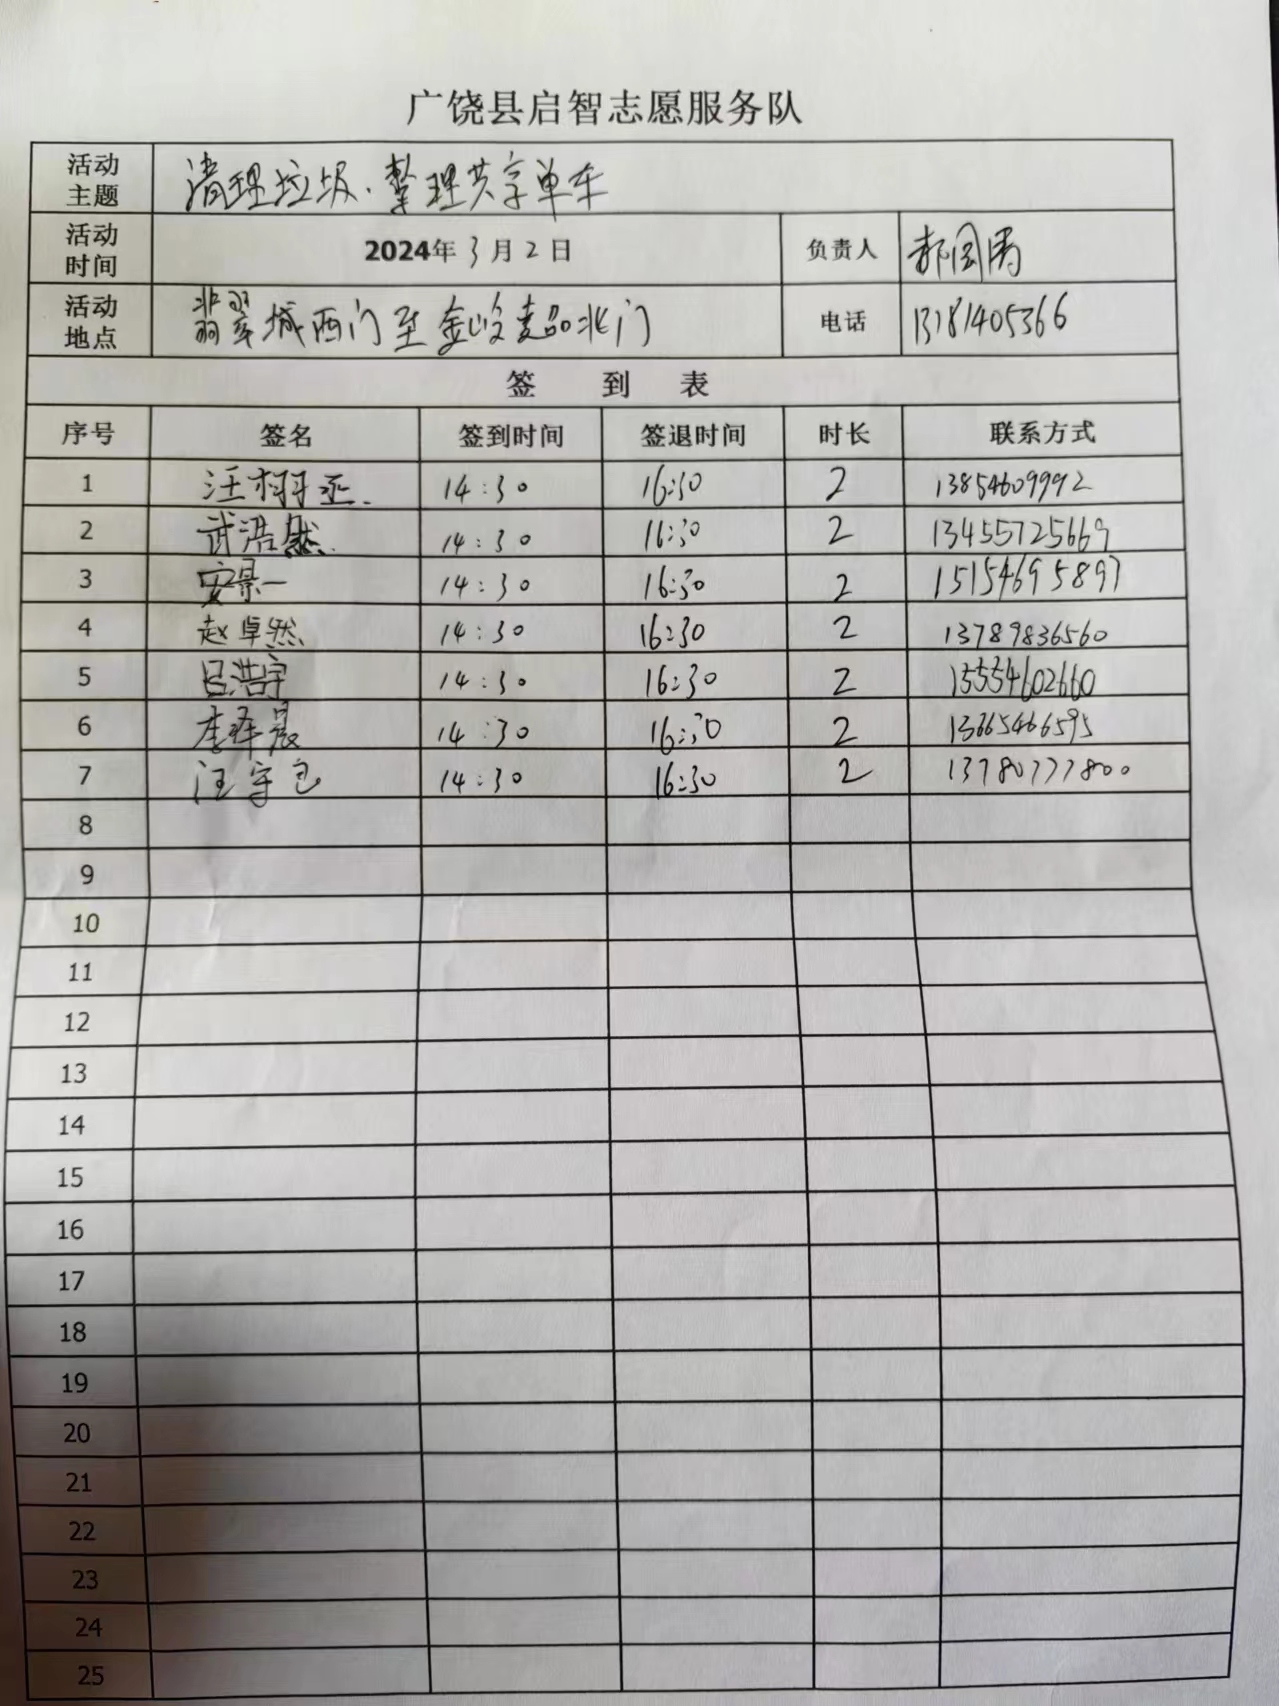 广饶县启智志愿服务队
活动主题 清理垃圾、整理共享单车
活动时间 2024年3月2日 负责人 郝国勇
活动地点 翡翠城西门至金岭壹品北门 电话 13181405366
签到表
序号 签名 签到时间 签退时间 时长 联系方式
1 汪栩丞 14:30 16:30 2 13854609992
2 武浩然 14:30 16:30 2 13455725669
3 安景一 14:30 16:30 2 15154695897
4 赵卓然 14:30 16:30 2 13789836560
5 吕浩宇 14:30 16:30 2 15554602660
6 李泽晨 14:30 16:30 2 13665466595
7 汪宇 14:30 16:30 2 13780777800
8
9
10
11
12
13
14
15
16
17
18
19
20
21
22
23
24
25